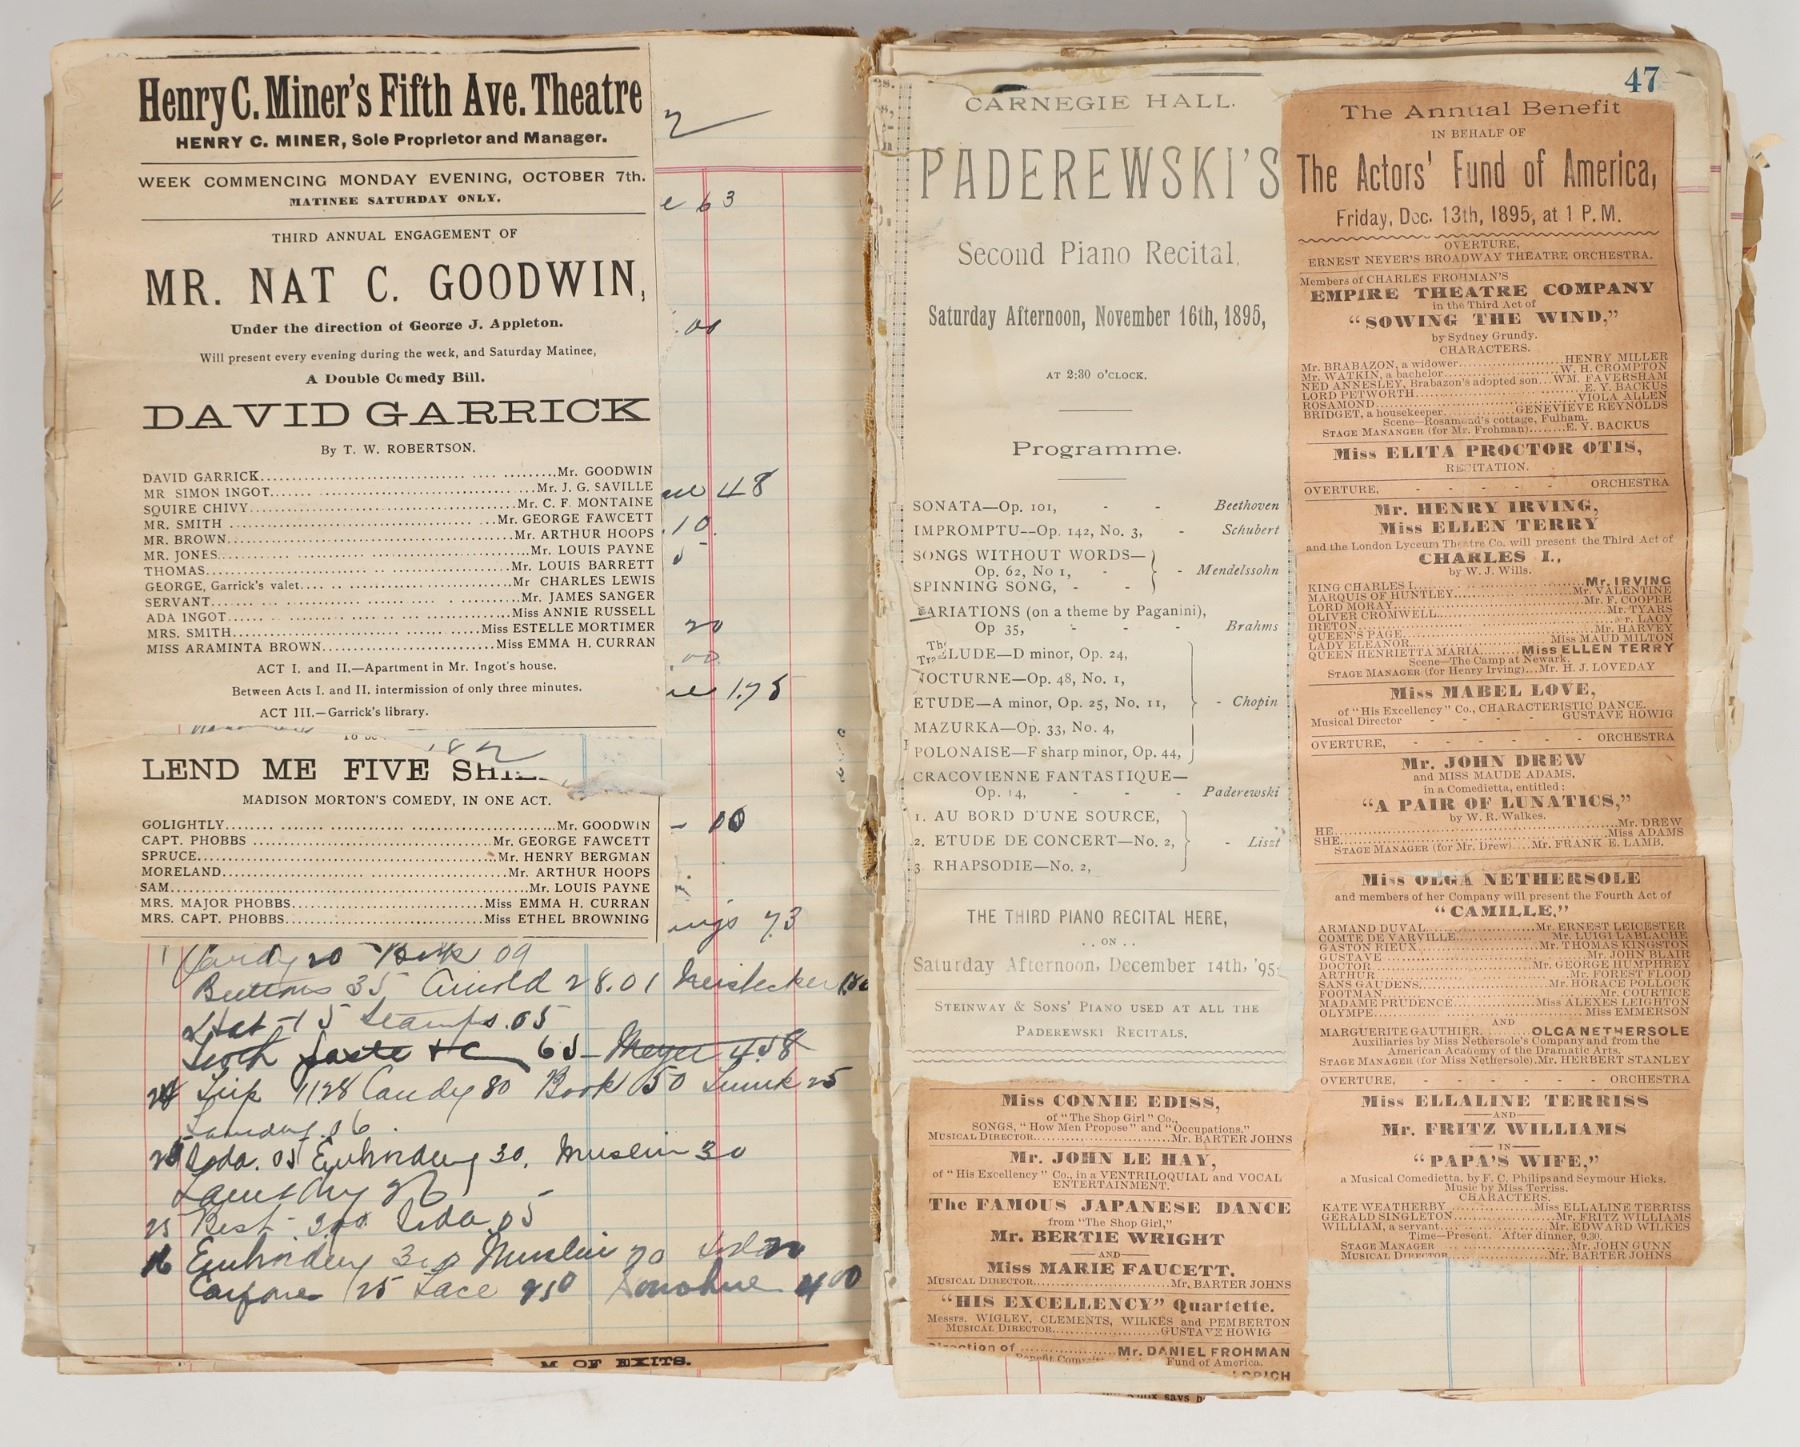 Henry C. Miner's Fifth Ave. Theatre
HENRY C. MINER, Sole Proprietor and Manager.
WEEK COMMENCING MONDAY EVENING, OCTOBER 7th.
MATINEE SATURDAY ONLY.
THIRD ANNUAL ENGAGEMENT OF
MR. NAT C. GOODWIN,
Under the direction of George J. Appleton.
Will present every evening during the week, and Saturday Matinee,
A Double Comedy Bill.
DAVID GARRICK
By T. W. ROBERTSON.
DAVID GARRICK......Mr. GOODWIN
MR SIMON INGOT......Mr. J. G. SAVILLE
SQUIRE CHIVY......Mr. C. F. MONTAINE
MR. SMITH......Mr. GEORGE FAWCETT
MR. BROWN......Mr. ARTHUR HOOPS
MR. JONES......Mr. LOUIS PAYNE
THOMAS......Mr. LOUIS BARRETT
GEORGE, Garrick's valet......Mr CHARLES LEWIS
SERVANT......Mr. JAMES SANGER
ADA INGOT......Miss ANNIE RUSSELL
MRS. SMITH......Miss ESTELLE MORTIMER
MISS ARAMINTA BROWN......Miss EMMA H. CURRAN
ACT I. and II.—Apartment in Mr. Ingot's house.
Between Acts I. and II. intermission of only three minutes.
ACT III.—Garrick's library.
LEND ME FIVE SHIL
MADISON MORTON'S COMEDY, IN ONE ACT.
GOLIGHTLY......Mr. GOODWIN
CAPT. PHOBBS......Mr. GEORGE FAWCETT
SPRUCE......Mr. HENRY BERGMAN
MORELAND......Mr. ARTHUR HOOPS
SAM......Mr. LOUIS PAYNE
MRS. MAJOR PHOBBS......Miss EMMA H. CURRAN
MRS. CAPT. PHOBBS......Miss ETHEL BROWNING
63
.00
48
.10
20
.00
1.75
00
73
Candy 20 Book 09
Buttons 35 Arnold 28.01
Hat 15 Stamps .05
65 Meyer 4.58
24 Trip 11.28 Candy 80 Book 50 Trunk 25
Laundry .06
25 Soda .05 Embroidery 30. Muslin 30
Laundry 26
25 Best 3.00 Soda .05
26 Embroidery 3.00 Muslin 70 Soda 20
Carfare 25 Lace 950 Donohue 400
M OF EXITS.
CARNEGIE HALL.
PADEREWSKI'S
Second Piano Recital,
Saturday Afternoon, November 16th, 1895,
AT 2:30 O'CLOCK.
Programme.
SONATA—Op. 101, - - Beethoven
IMPROMPTU--Op. 142, No. 3, - Schubert
SONGS WITHOUT WORDS—
Op. 62, No 1, - - Mendelssohn
SPINNING SONG, - -
VARIATIONS (on a theme by Paganini),
Op 35, - - - Brahms
LUDE—D minor, Op. 24,
NOCTURNE—Op. 48, No. 1,
ETUDE—A minor, Op. 25, No. 11, - Chopin
MAZURKA—Op. 33, No. 4,
POLONAISE—F sharp minor, Op. 44,
CRACOVIENNE FANTASTIQUE—
Op. 14, - - - Paderewski
1. AU BORD D'UNE SOURCE,
2. ETUDE DE CONCERT—No. 2, - Liszt
3 RHAPSODIE—No. 2,
THE THIRD PIANO RECITAL HERE,
. . ON . .
Saturday Afternoon, December 14th, '95
STEINWAY & SONS' PIANO USED AT ALL THE
PADEREWSKI RECITALS.
Miss CONNIE EDISS,
of "The Shop Girl" Co.,
SONGS, "How Men Propose" and "Occupations."
MUSICAL DIRECTOR......Mr. BARTER JOHNS
Mr. JOHN LE HAY,
of "His Excellency" Co., in a VENTRILOQUIAL and VOCAL
ENTERTAINMENT.
The FAMOUS JAPANESE DANCE
from "The Shop Girl,"
Mr. BERTIE WRIGHT
—AND—
Miss MARIE FAUCETT.
MUSICAL DIRECTOR......Mr. BARTER JOHNS
"HIS EXCELLENCY" Quartette.
Messrs. WIGLEY, CLEMENTS, WILKES and PEMBERTON
MUSICAL DIRECTOR......GUSTAVE HOWIG
Direction of......Mr. DANIEL FROHMAN
Fund of America.
47
The Annual Benefit
IN BEHALF OF
The Actors' Fund of America,
Friday, Dec. 13th, 1895, at 1 P. M.
OVERTURE,
ERNEST NEYER'S BROADWAY THEATRE ORCHESTRA.
Members of CHARLES FROHMAN'S
EMPIRE THEATRE COMPANY
in the Third Act of
"SOWING THE WIND,"
by Sydney Grundy.
CHARACTERS.
Mr. BRABAZON, a widower......HENRY MILLER
Mr. WATKIN, a bachelor......W. H. CROMPTON
NED ANNESLEY, Brabazon's adopted son...WM. FAVERSHAM
LORD PETWORTH......E. Y. BACKUS
ROSAMOND......VIOLA ALLEN
BRIDGET, a housekeeper......GENEVIEVE REYNOLDS
Scene—Rosamond's cottage, Fulham.
STAGE MANANGER (for Mr. Frohman)........E. Y. BACKUS
Miss ELITA PROCTOR OTIS,
RECITATION.
OVERTURE, - - - - - ORCHESTRA
Mr. HENRY IRVING,
Miss ELLEN TERRY
and the London Lyceum Theatre Co. will present the Third Act of
CHARLES I.,
by W. J. Wills.
KING CHARLES I......Mr. IRVING
MARQUIS OF HUNTLEY......Mr. VALENTINE
LORD MORAY......Mr. F. COOPER
OLIVER CROMWELL......Mr. TYARS
IRETON......Mr. LACY
QUEEN'S PAGE......Mr. HARVEY
LADY ELEANOR......Miss MAUD MILTON
QUEEN HENRIETTA MARIA......Miss ELLEN TERRY
Scene—The Camp at Newark.
STAGE MANAGER (for Henry Irving)...Mr. H. J. LOVEDAY
Miss MABEL LOVE,
of "His Excellency" Co., CHARACTERISTIC DANCE.
Musical Director - - - - GUSTAVE HOWIG
OVERTURE, - - - - - ORCHESTRA
Mr. JOHN DREW
and MISS MAUDE ADAMS,
in a Comedietta, entitled:
"A PAIR OF LUNATICS,"
by W. R. Walkes.
HE......Mr. DREW
SHE......Miss ADAMS
STAGE MANAGER (for Mr. Drew)....Mr. FRANK E. LAMB.
Miss OLGA NETHERSOLE
and members of her Company will present the Fourth Act of
"CAMILLE,"
ARMAND DUVAL......Mr. ERNEST LEICESTER
COMTE DE VARVILLE......Mr. LUIGI LABLACHE
GASTON RIEUX......Mr. THOMAS KINGSTON
GUSTAVE......Mr. JOHN BLAIR
DOCTOR......Mr. GEORGE HUMPHREY
ARTHUR......Mr. FOREST FLOOD
SANS GAUDENS......Mr. HORACE POLLOCK
FOOTMAN......Mr. COURTICE
MADAME PRUDENCE......Miss ALEXES LEIGHTON
OLYMPE......Miss EMMERSON
AND
MARGUERITE GAUTHIER......OLGA NETHERSOLE
Auxiliaries by Miss Nethersole's Company and from the
American Academy of the Dramatic Arts.
STAGE MANAGER (for Miss Nethersole), Mr. HERBERT STANLEY
OVERTURE, - - - - - ORCHESTRA
Miss ELLALINE TERRISS
—AND—
Mr. FRITZ WILLIAMS
— IN —
"PAPA'S WIFE,"
a Musical Comedietta, by F. C. Philips and Seymour Hicks.
Music by Miss Terriss.
CHARACTERS.
KATE WEATHERBY......Miss ELLALINE TERRISS
GERALD SINGLETON......Mr. FRITZ WILLIAMS
WILLIAM, a servant......Mr. EDWARD WILKES
Time—Present. After dinner, 9.30.
STAGE MANAGER......Mr. JOHN GUNN
MUSICAL DIRECTOR......Mr. BARTER JOHNS